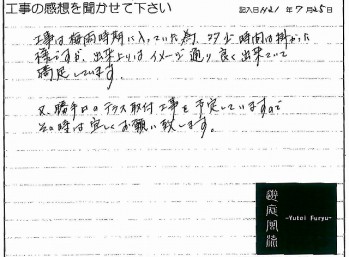 工事の感想を聞かせて下さい
記入日 H21年7月25日
工事は梅雨時期に入っていた為、多少時間は掛かった
様ですが、出来上りはイメージ通り良く出来ていて
満足しています。
又、勝手口のテラス取付工事を予定していますので
その時は宜しくお願い致します。
遊庭風流
-Yutei Furyu-